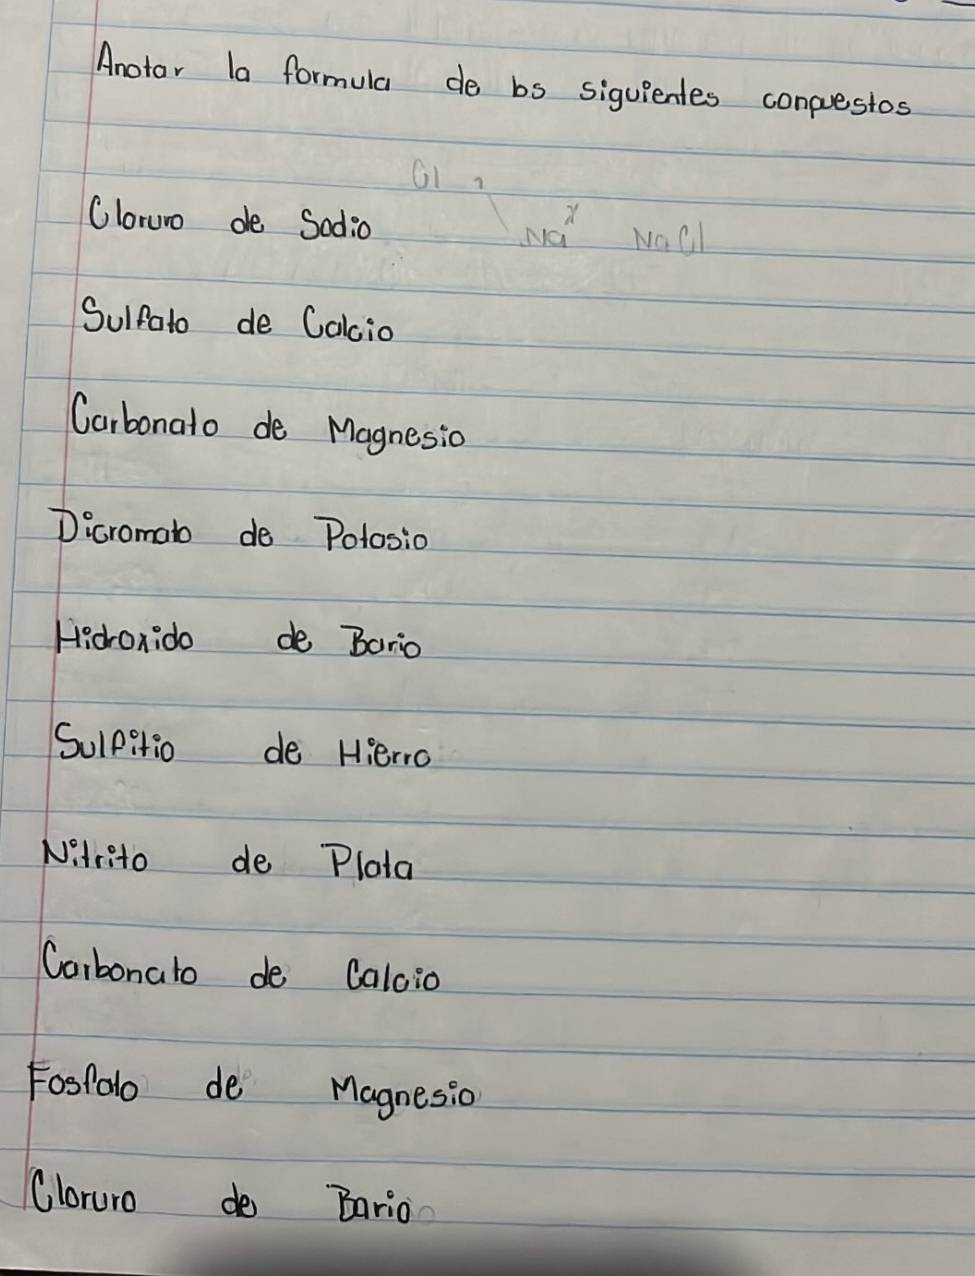 Anotar la formula de los siguientes conpuestos
Cl 1
Cloruro de Sodio Na NaCl
Sulfato de Calcio
Carbonato de Magnesio
Dicromato de Potasio
Hidroxido de Bario
Sulfitio de Hierro
Nitrito de Plata
Carbonato de Calcio
Fosfato de Magnesio
Cloruro de Bario